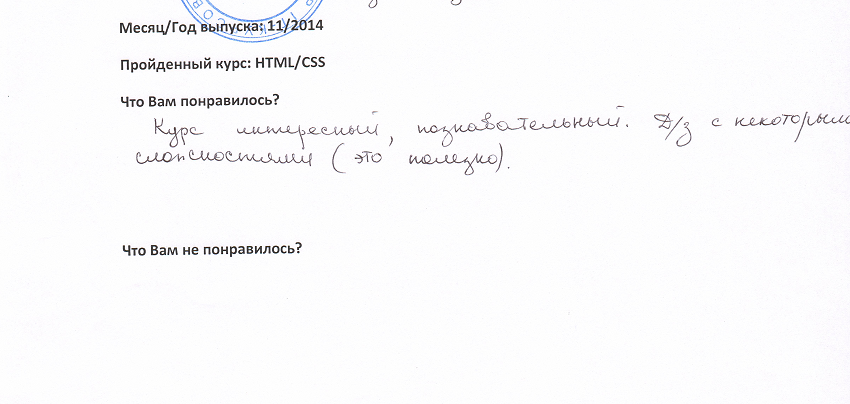 Месяц/Год выпуска: 11/2014
Пройденный курс: HTML/CSS
Что Вам понравилось?
Курс интересный, познавательный. Д/з с некоторыми
сложностями (это полезно).
Что Вам не понравилось?